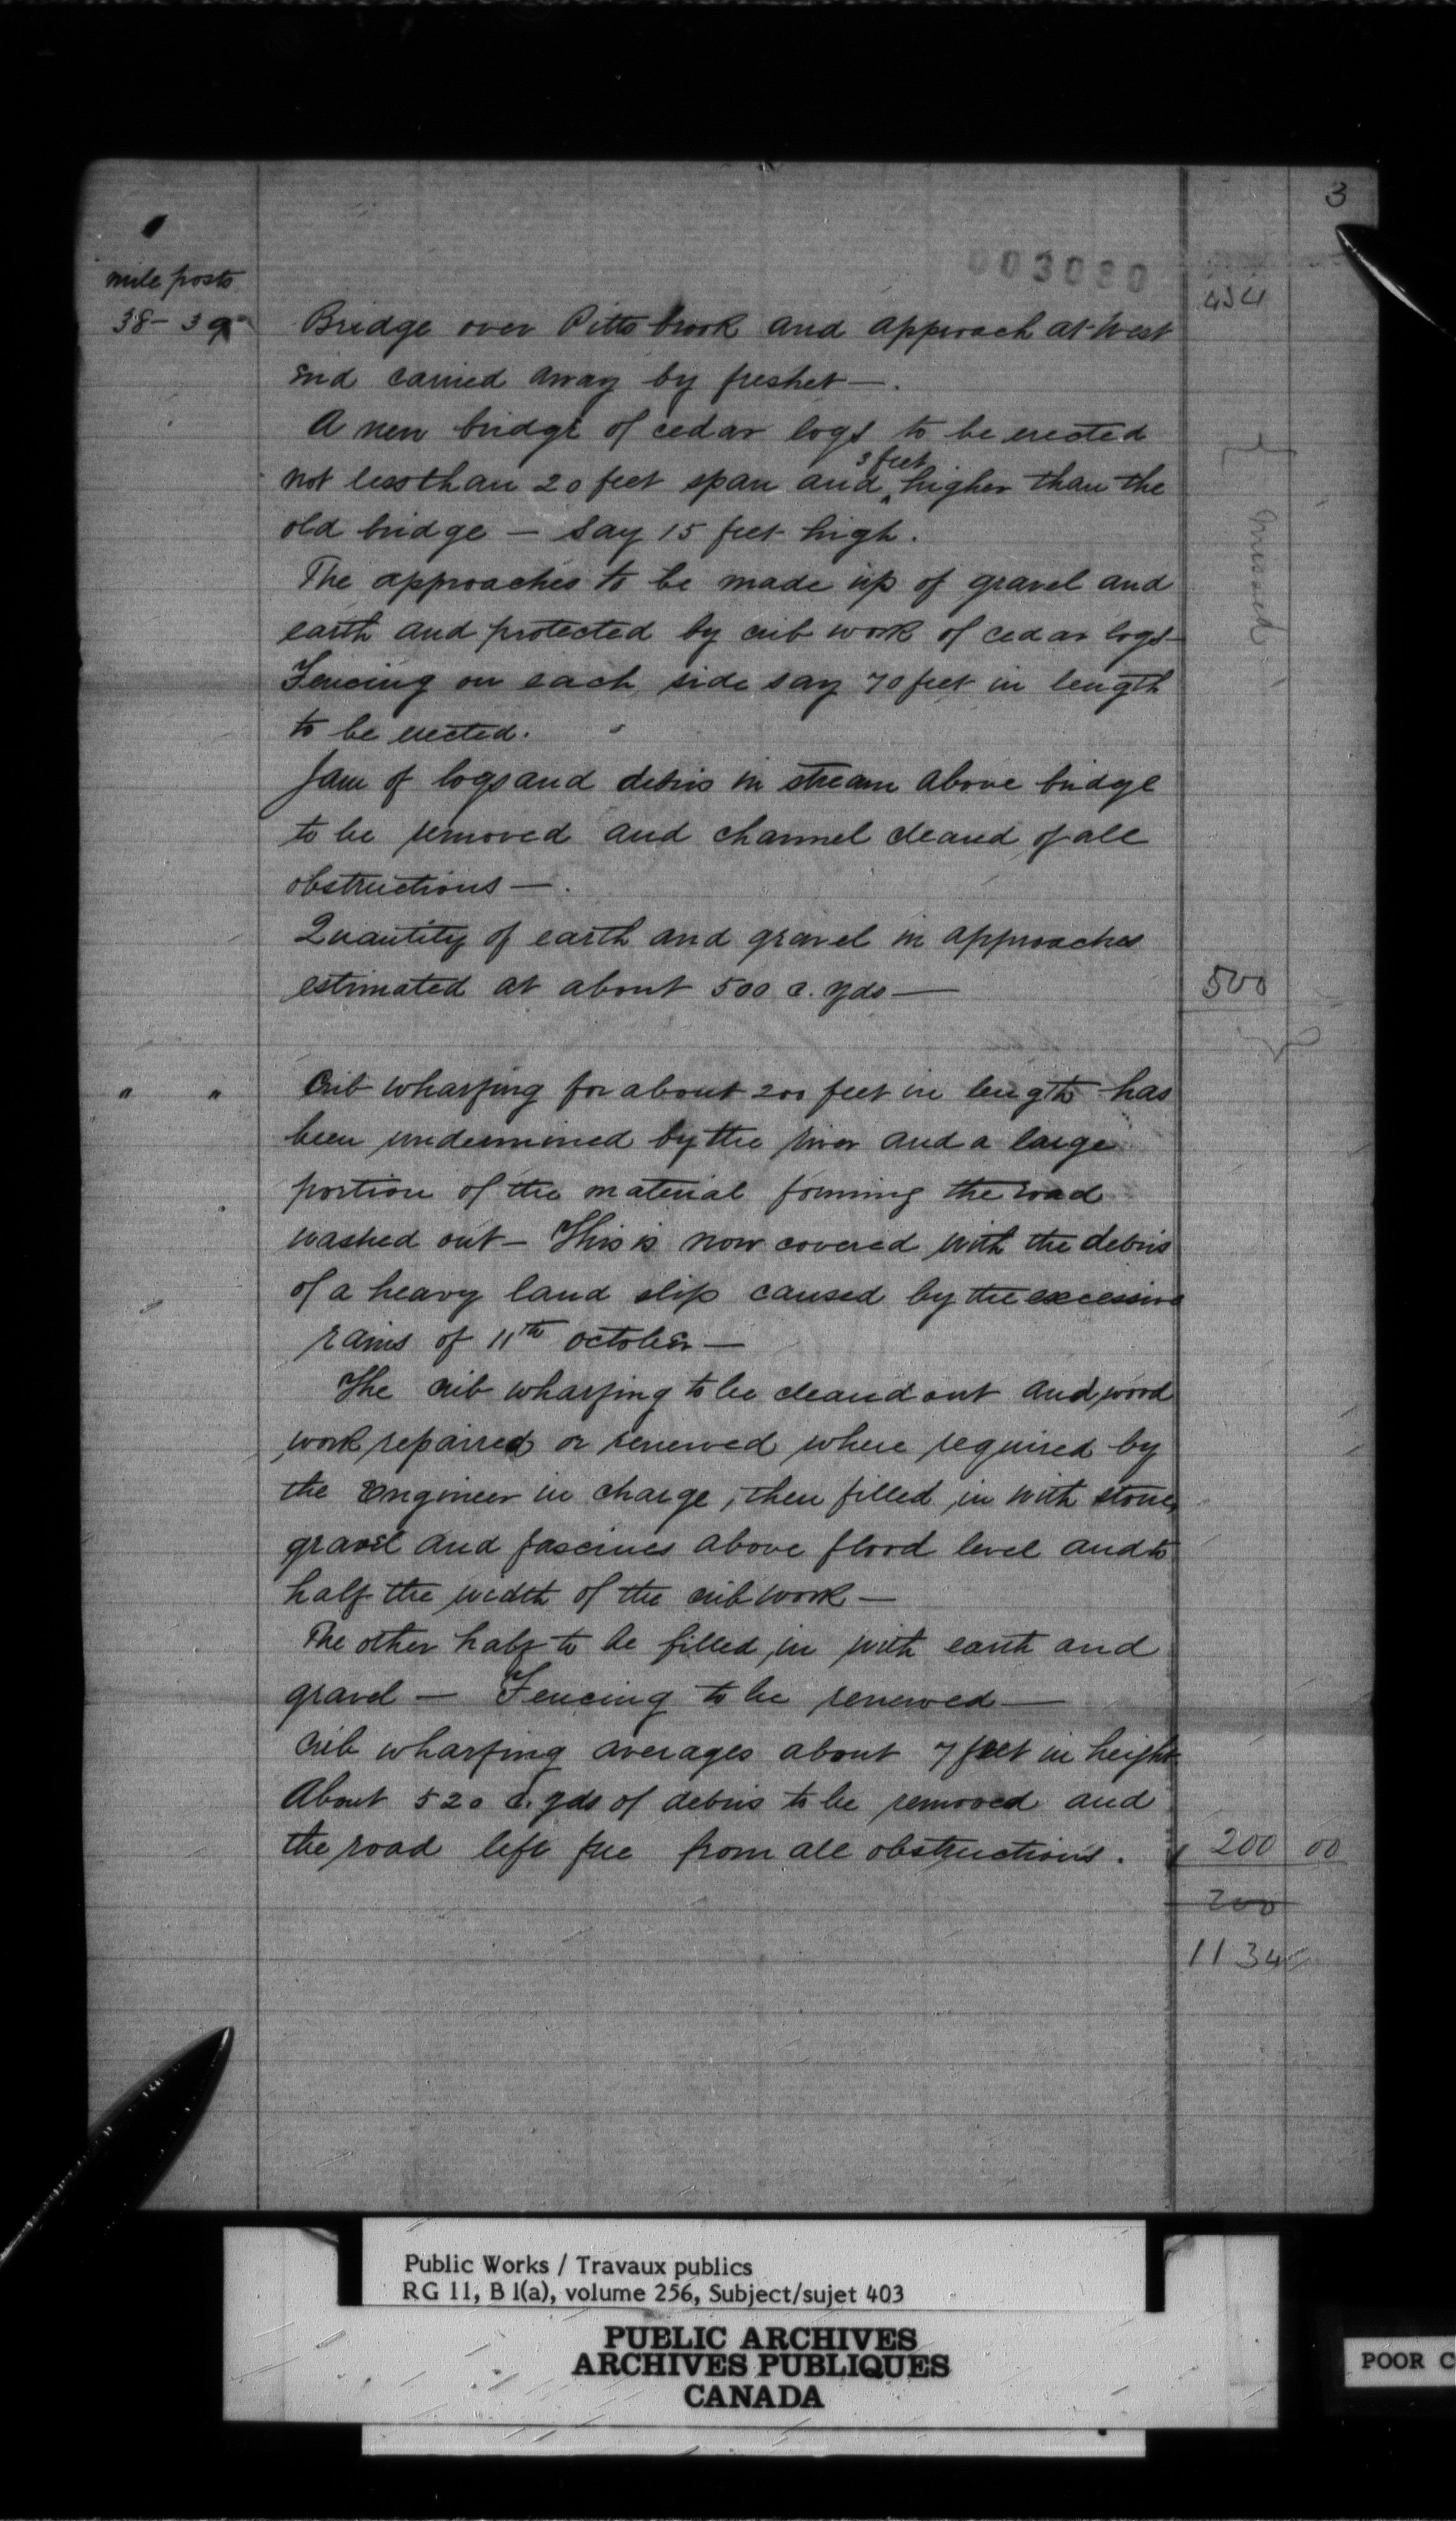 3
003080
mile posts
434
38-39 Bridge over Pitts brook and approach at West
End carried away by freshet —.
A new bridge of cedar logs to be erected
3 feet
not less than 20 feet span and ‸ higher than the
old bridge — Say 15 feet high.
The approaches to be made up of gravel and
earth and protected by crib work of cedar logs—
Fencing on each side say 70 feet in length
to be erected.
Jam of logs and debris in stream above bridge
to be removed and channel cleared of all
obstructions —.
Quantity of earth and gravel in approaches
estimated at about 500 c. yds — 500
" " Crib wharfing for about 200 feet in length has
been undermined by the river and a large
portion of the material forming the road
washed out — This is now covered with the debris
of a heavy land slip caused by the excessive
rains of 11th October —
The crib wharfing to be cleared out and wood
work repaired or renewed where required by
the Engineer in charge, then filled in with stone,
gravel and fascines above flood level and to
half the width of the crib work —
The other half to be filled in with earth and
gravel — Fencing to be renewed —
Crib wharfing averages about 7 feet in height
About 520 c. yds of debris to be removed and
the road left free from all obstructions. 200 00
200
1134
Public Works / Travaux publics
RG 11, B 1(a), volume 256, Subject/sujet 403
PUBLIC ARCHIVES
ARCHIVES PUBLIQUES
CANADA
POOR C